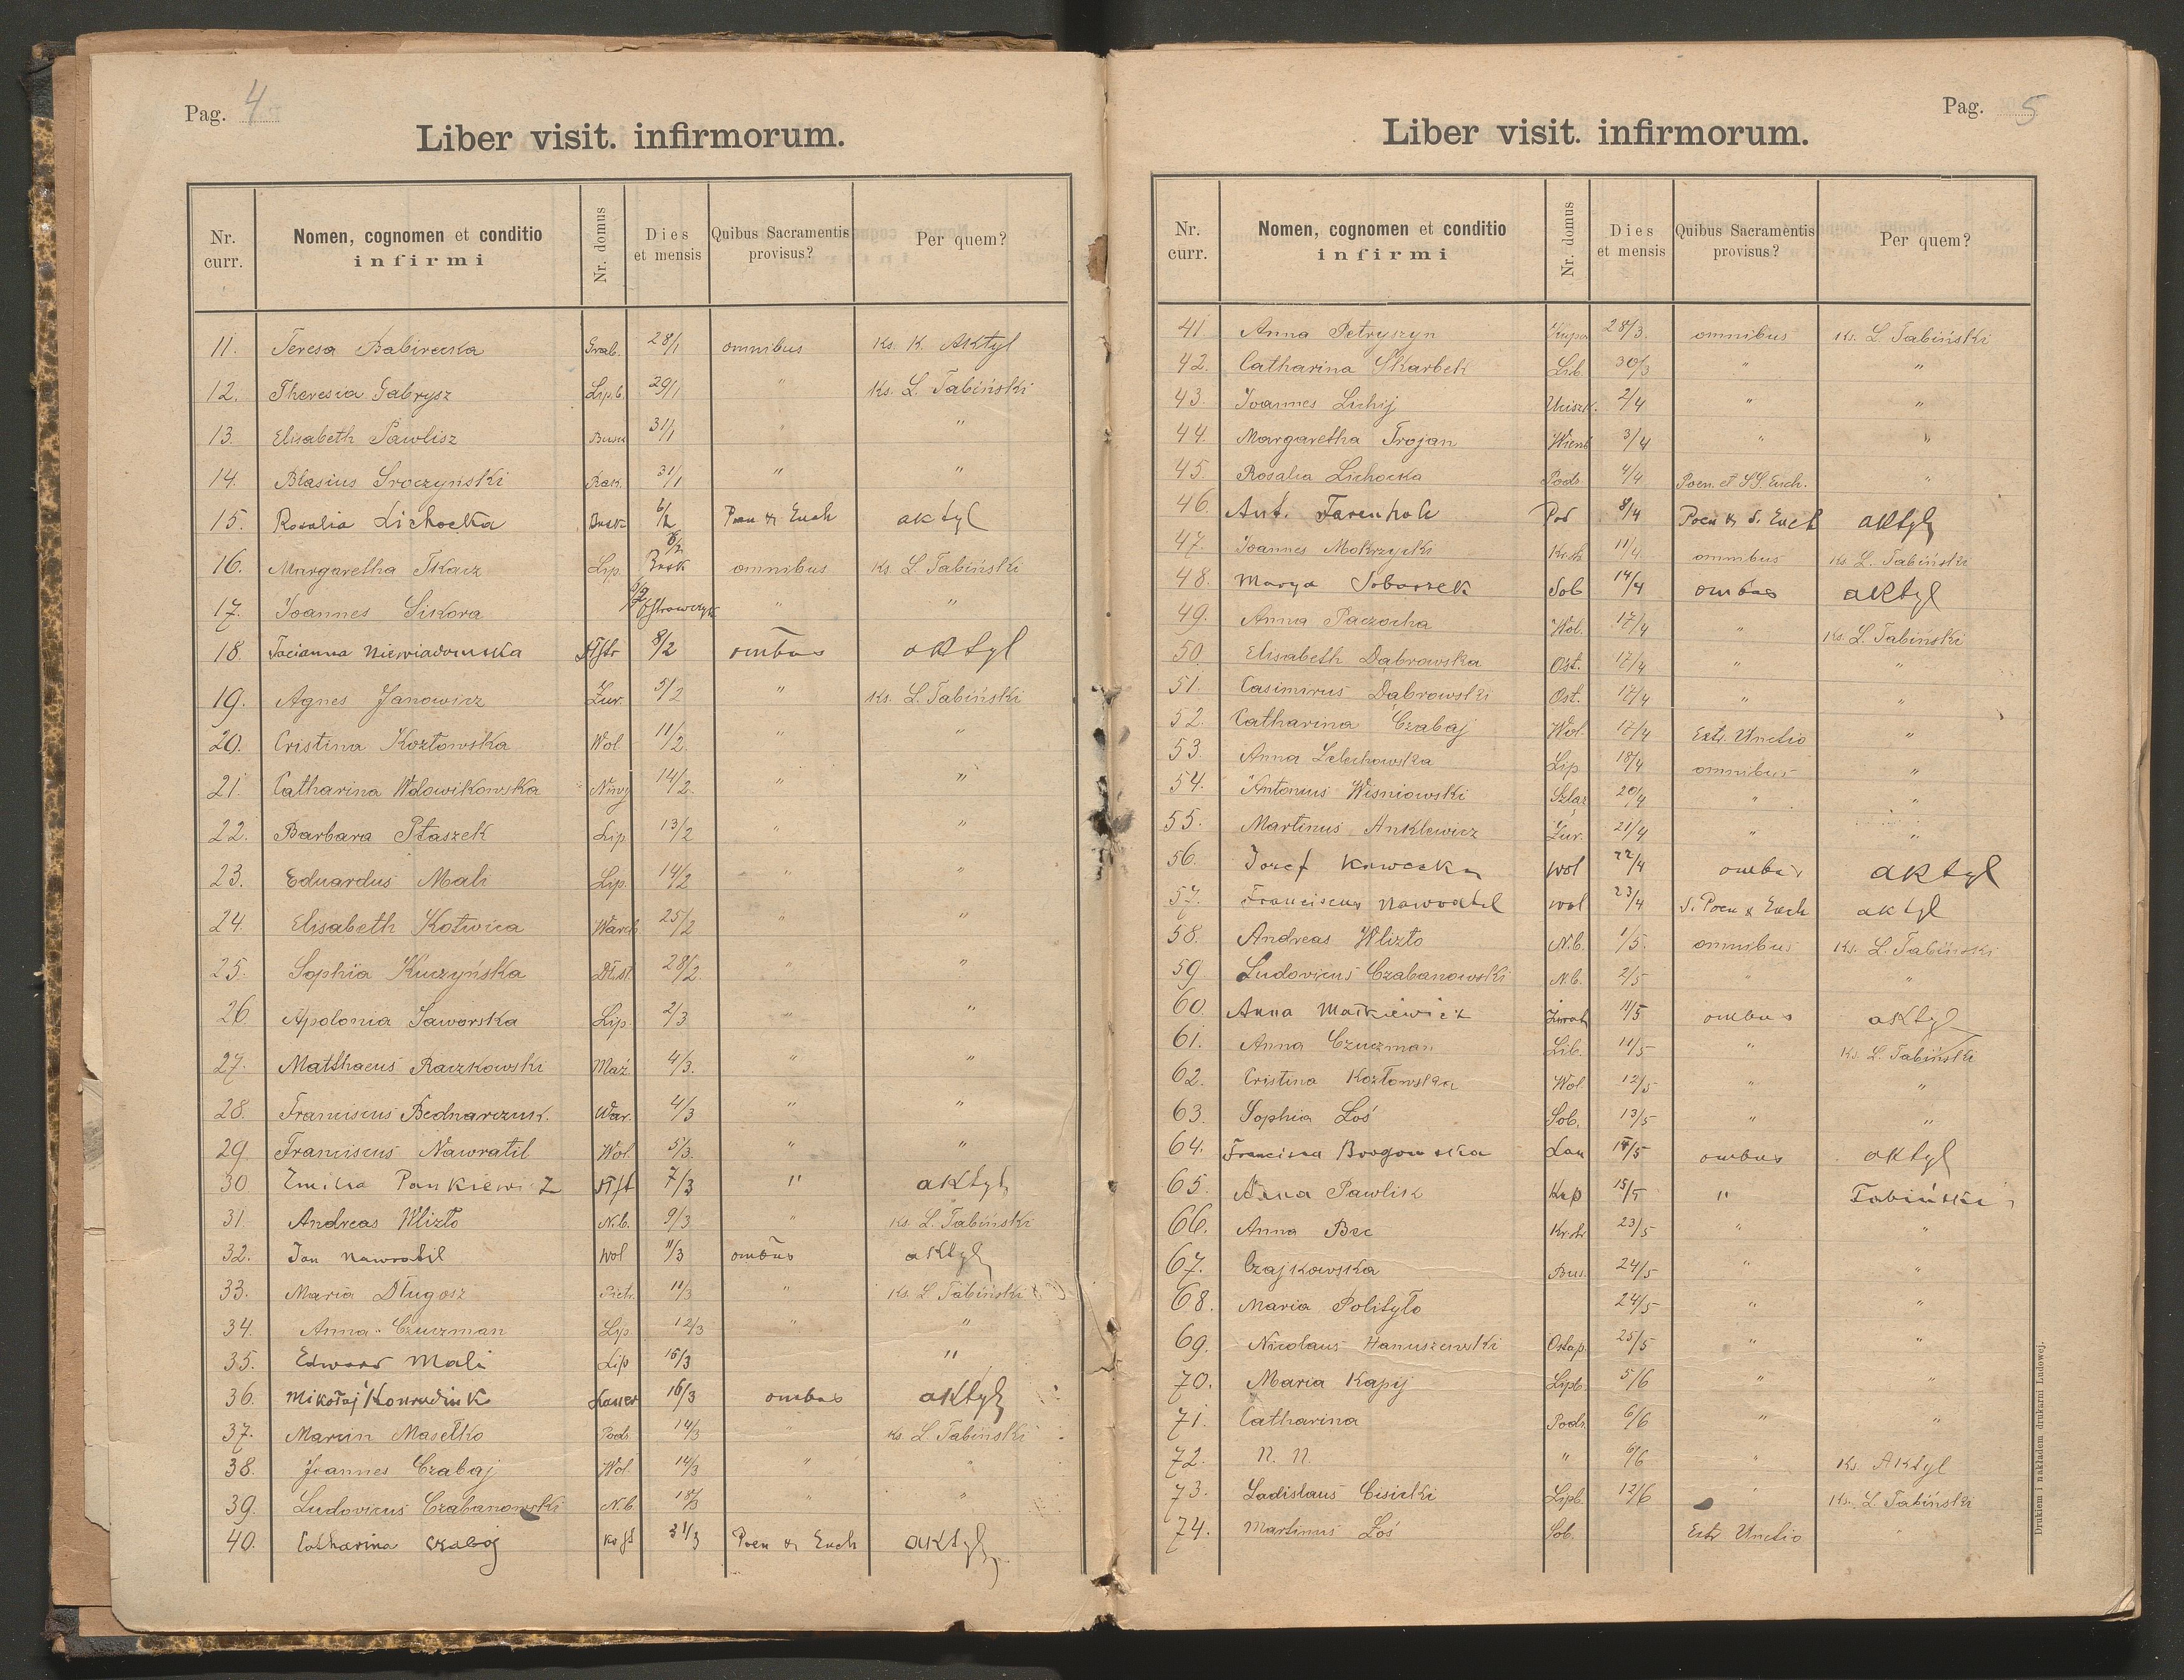 Pag. 4
Liber visit. infirmorum.
Nr. curr. Nomen, cognomen et conditio infirmi Nr. domus Dies et mensis Quibus Sacramentis provisus? Per quem?
11. Teresa Babirecka Grab. 28/1 omnibus ks. K. Aktyl
12. Theresia Gabrysz Lip.b. 29/1 " ks. L. Tabiński
13. Elisabeth Pawlisz Busk 31/1 " "
14. Blasius Sroczyński Rak. 31/1 " "
15. Rosalia Lichocka Busk 6/2 Poen & Euch aktyl
16. Margaretha Tkacz Lip. 6/2 Busk omnibus ks. L. Tabiński
17. Joannes Sikora 6/2 Ostrowczyk " "
18. Tacianna Niewiadomska 8/2 ombus aktyl
19. Agnes Janowicz Żur. 5/2 " ks. L. Tabiński
20. Cristina Kozłowska Wol. 11/2 " "
21. Catharina Wdowikowska Niwy 14/2. " "
22. Barbara Ptaszek Lip. 13/2 " "
23. Eduardus Mali Lip. 14/2 " "
24. Elisabeth Kotwica Warch 25/2 " "
25. Sophia Kuczyńska Dłst 28/2. " "
26. Apolonia Jaworska Lip. 2/3 " "
27. Matthaeus Raczkowski Maź. 4/3. " "
28. Franciscus Bednarczuk. War. 4/3 " "
29. Franciscus Nawratil Wol. 5/3. " "
30 Emilia Pankiewicz 7/3 " aktyl
31. Andreas Wlizło N.b. 9/3 " ks. L. Tabiński
32. Jan Nawratil Wol 11/3 ombus aktyl
33. Maria Długosz Pietr. 11/3 " ks. L. Tabiński
34. Anna Czuczman Lip. 12/3 " "
35. Edward Mali Lip 15/3 "
36. Mikołaj Konradiuk 16/3 ombus aktyl
37. Marcin Masełko Pods 14/3 " ks. L. Tabiński
38. Joannes Czabaj Wol. 14/3 " "
39. Ludovicus Czabanowski N.b. 18/3 " "
40. Catharina Czabaj 31/3 Poen & Euch aktyl
Pag. 5
Liber visit. infirmorum.
Nr. curr. Nomen, cognomen et conditio infirmi Nr. domus Dies et mensis Quibus Sacramentis provisus? Per quem?
41. Anna Petryszyn Kupcz 28/3. omnibus ks. L. Tabiński
42. Catharina Skarbek Lib. 30/3 " "
43. Joannes Lichij Uciszk. 2/4 " "
44. Margaretha Trojan Wierzb 3/4 " "
45. Rosalia Lichocka Pods. 4/4 Poen. et SS. Euch. "
46. Ant. Farenhole Pod 8/4 Poen & S. Euch aktyl
47. Joannes Mokrzycki Kr.st. 11/4. omnibus ks. L. Tabiński
48. Marya Sobaszek Sob 14/4 ombus aktyl
49. Anna Paczocha Wol. 17/4 " ks. L. Tabiński
50. Elisabeth Dąbrowska Ost. 17/4 " "
51. Casimirus Dąbrowski Ost. 17/4 " "
52. Catharina Czabaj Wol. 17/4 Extr. Unctio "
53. Anna Lelechowska Lip 18/4 omnibus "
54. Antonius Wiśniowski Szlaz 20/4 " "
55. Martinus Anklewicz Żur. 21/4 " "
56. Josef Kawecka Wol 22/4 ombus aktyl
57. Franciscus Nawratil Wol 23/4 S. Poen & Euch aktyl
58. Andreas Wlizło N.b. 1/5. omnibus ks. L. Tabiński
59. Ludovicus Czabanowski N.b. 2/5 " "
60. Anna Maćkiewicz Żurat 11/5 ombus aktyl
61. Anna Czuczman Lib. 11/5 " ks. L. Tabiński
62. Cristina Kozłowska Wol 12/5 " "
63. Sophia Łoś Sob. 13/5 " "
64. Francisca Borgowska Lan 14/5 ombus aktyl
65. Anna Pawlik Kup 15/5 " Tabiński
66. Anna Bec Kr.str 23/5 " "
67. Czajkowska Bus. 24/5 " "
68. Maria Polityło 24/5 " "
69. Nicolaus Hanuszewski Ostap. 25/5 " "
70. Maria Kapij Lipb. 5/6 " "
71. Catharina Pods. 6/6 " "
72. N. N. " 6/6 " ks. Aktyl
73. Ladislaus Cisielki Lipb. 12/6 " ks. L. Tabiński
74. Martinus Łoś Sob. Extr Unctio "
Drukiem i nakładem drukarni Ludowej.